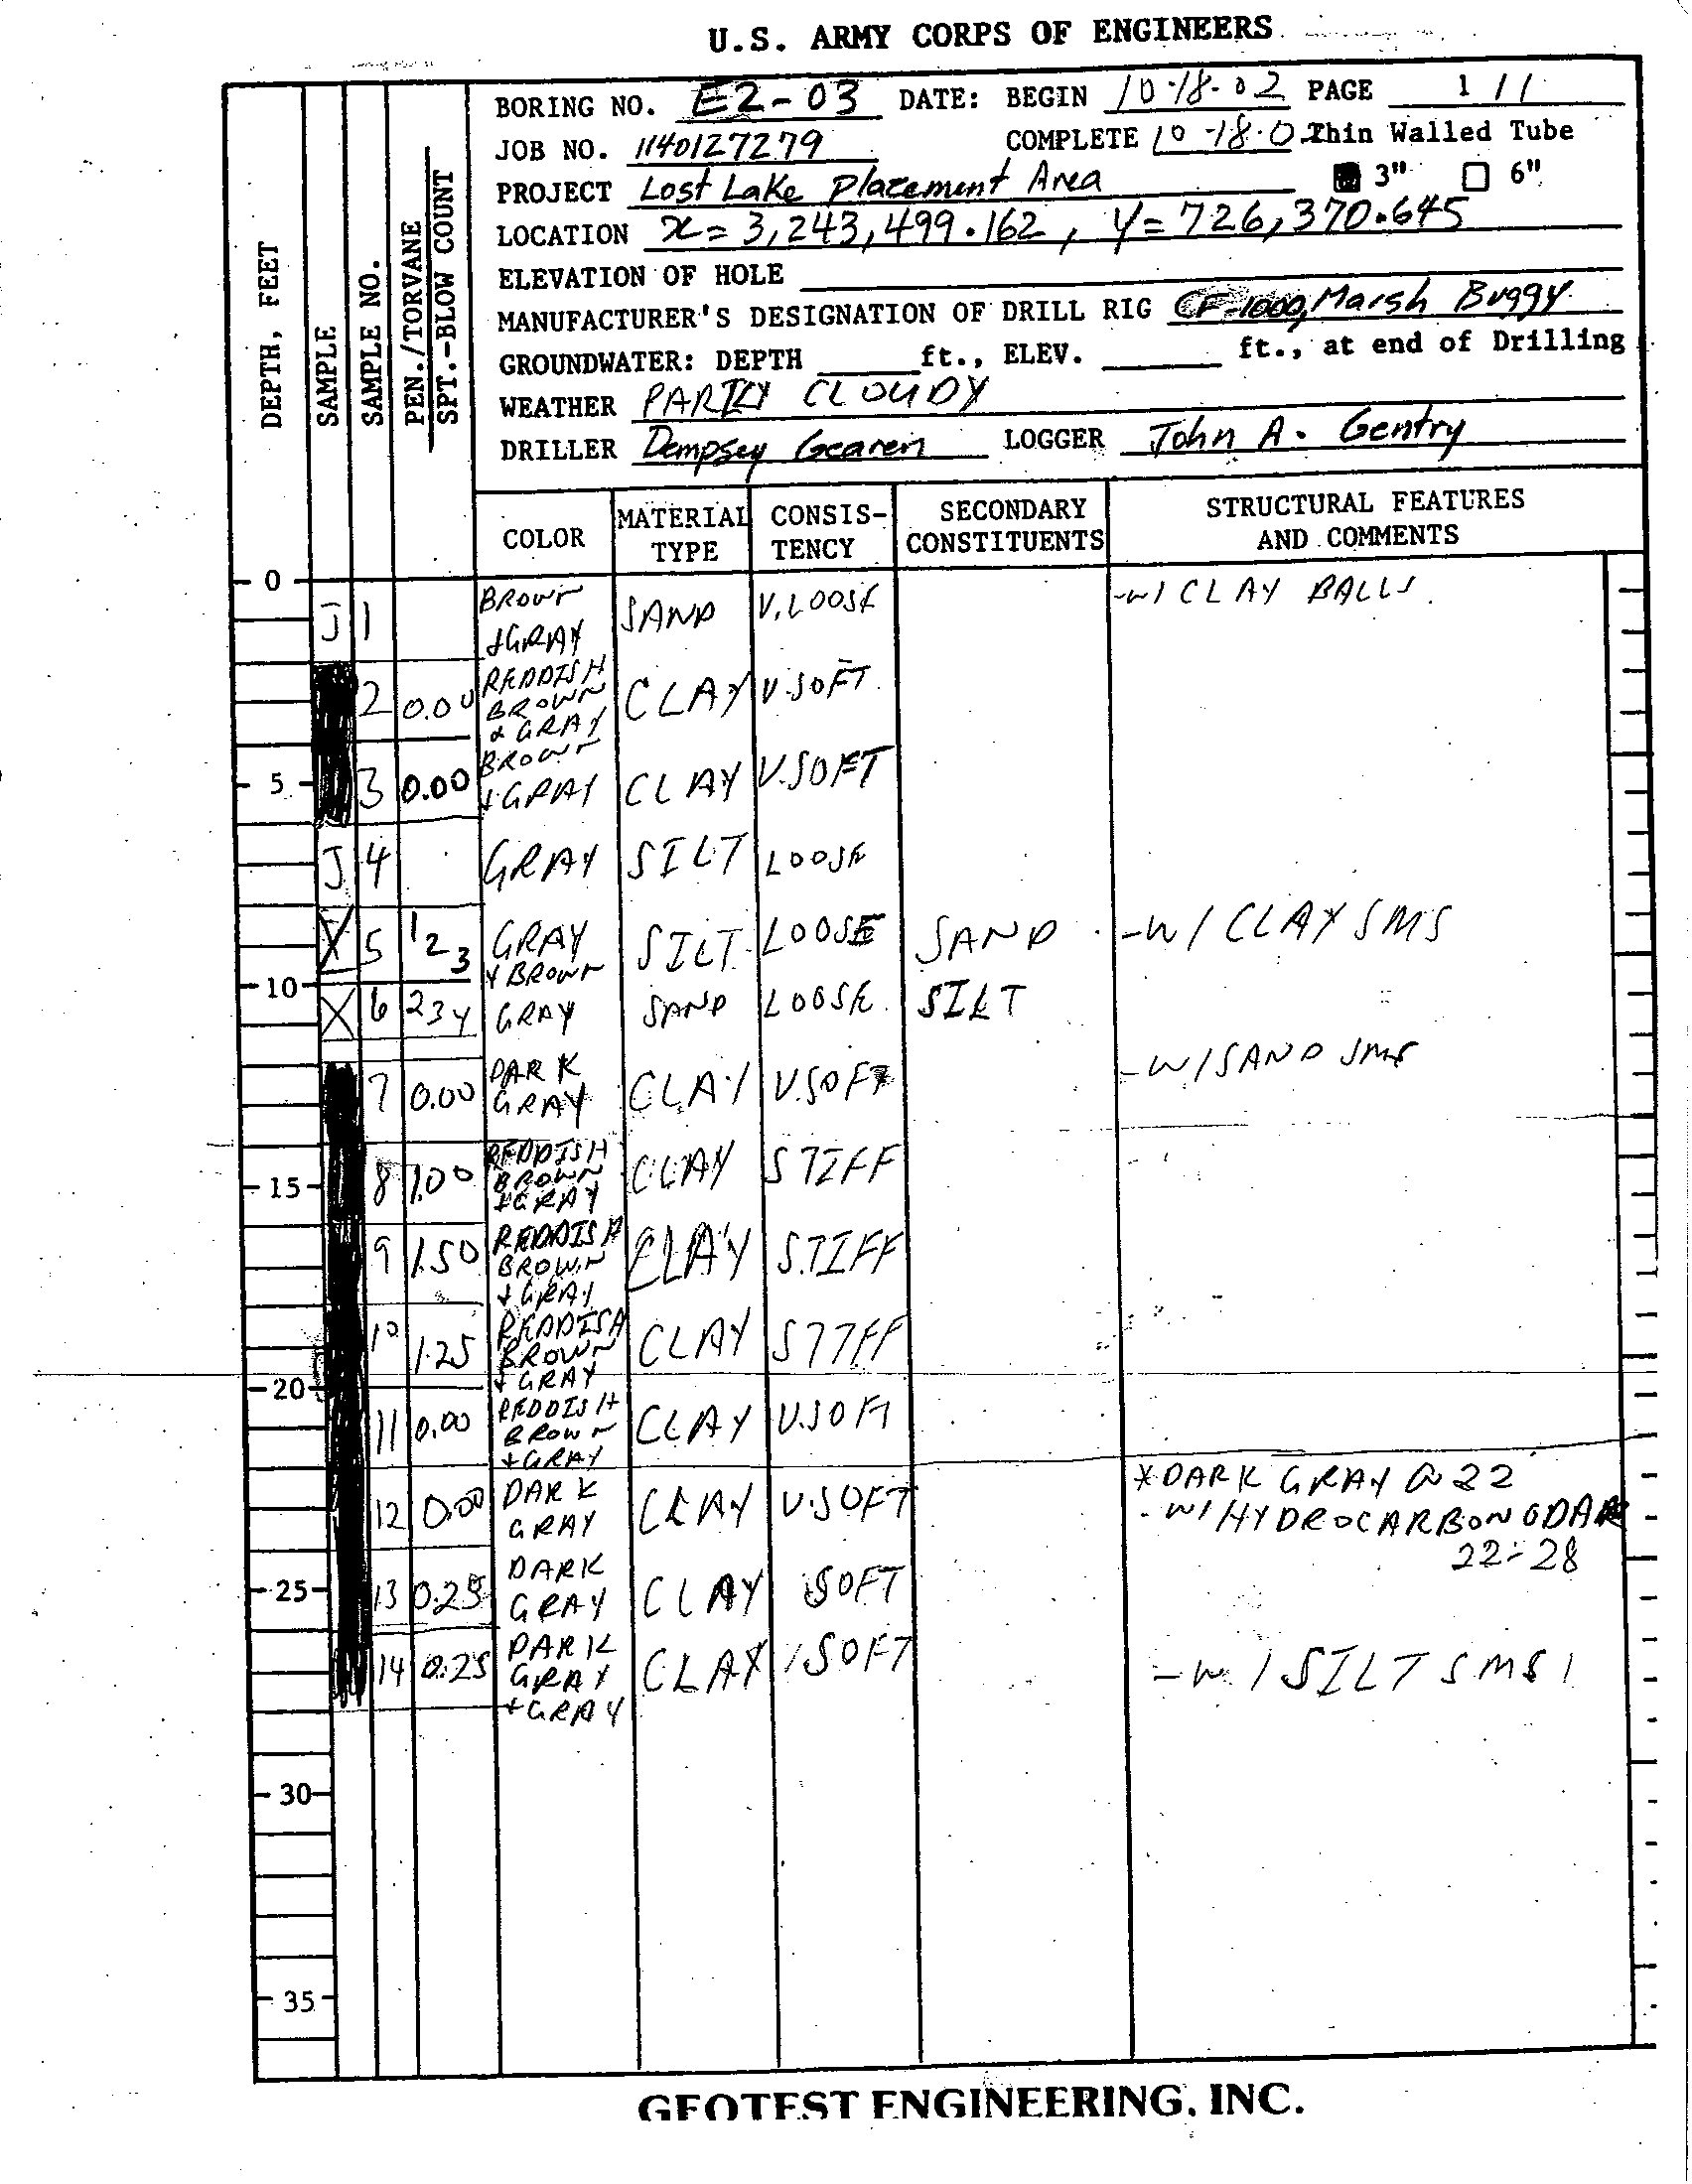 U.S. ARMY CORPS OF ENGINEERS
BORING NO. E2-03 DATE: BEGIN 10-18-02 PAGE 1 / 1
JOB NO. 1140127279 COMPLETE 10-18-0 Thin Walled Tube
PROJECT Lost Lake Placement Area 3" 6"
LOCATION x= 3,243,499.162, y= 726,370.645
ELEVATION OF HOLE
MANUFACTURER'S DESIGNATION OF DRILL RIG CF-1000, Marsh Buggy
GROUNDWATER: DEPTH ft., ELEV. ft., at end of Drilling
WEATHER PARTLY CLOUDY
DRILLER Dempsey Gearen LOGGER John A. Gentry
DEPTH, FEET
SAMPLE
SAMPLE NO.
PEN./TORVANE
SPT.-BLOW COUNT
COLOR MATERIAL TYPE CONSIS-TENCY SECONDARY CONSTITUENTS STRUCTURAL FEATURES AND COMMENTS
0
J 1 BROWN +GRAY SAND V.LOOSE -W/ CLAY BALLS
2 0.00 REDDISH BROWN & GRAY CLAY V.SOFT
5
3 0.00 BROWN +GRAY CLAY V.SOFT
J 4 GRAY SILT LOOSE
X 5 1 2 3 GRAY + BROWN SILT LOOSE SAND -W/ CLAY SMS
10
X 6 2 3 4 GRAY SAND LOOSE SILT
7 0.00 DARK GRAY CLAY V.SOFT -W/SAND SMS
15
8 1.00 REDDISH BROWN +GRAY CLAY STIFF
9 1.50 REDDISH BROWN + GRAY CLAY STIFF
10 1.25 REDDISH BROWN + GRAY CLAY STIFF
20
11 0.00 REDDISH BROWN +GRAY CLAY V.SOFT
12 0.00 DARK GRAY CLAY V.SOFT *DARK GRAY @ 22
-W/HYDROCARBON ODAR
22-28
25
13 0.25 DARK GRAY CLAY SOFT
14 0.25 DARK GRAY +GRAY CLAY SOFT -W/SILT SMS
30
35
GEOTEST ENGINEERING, INC.